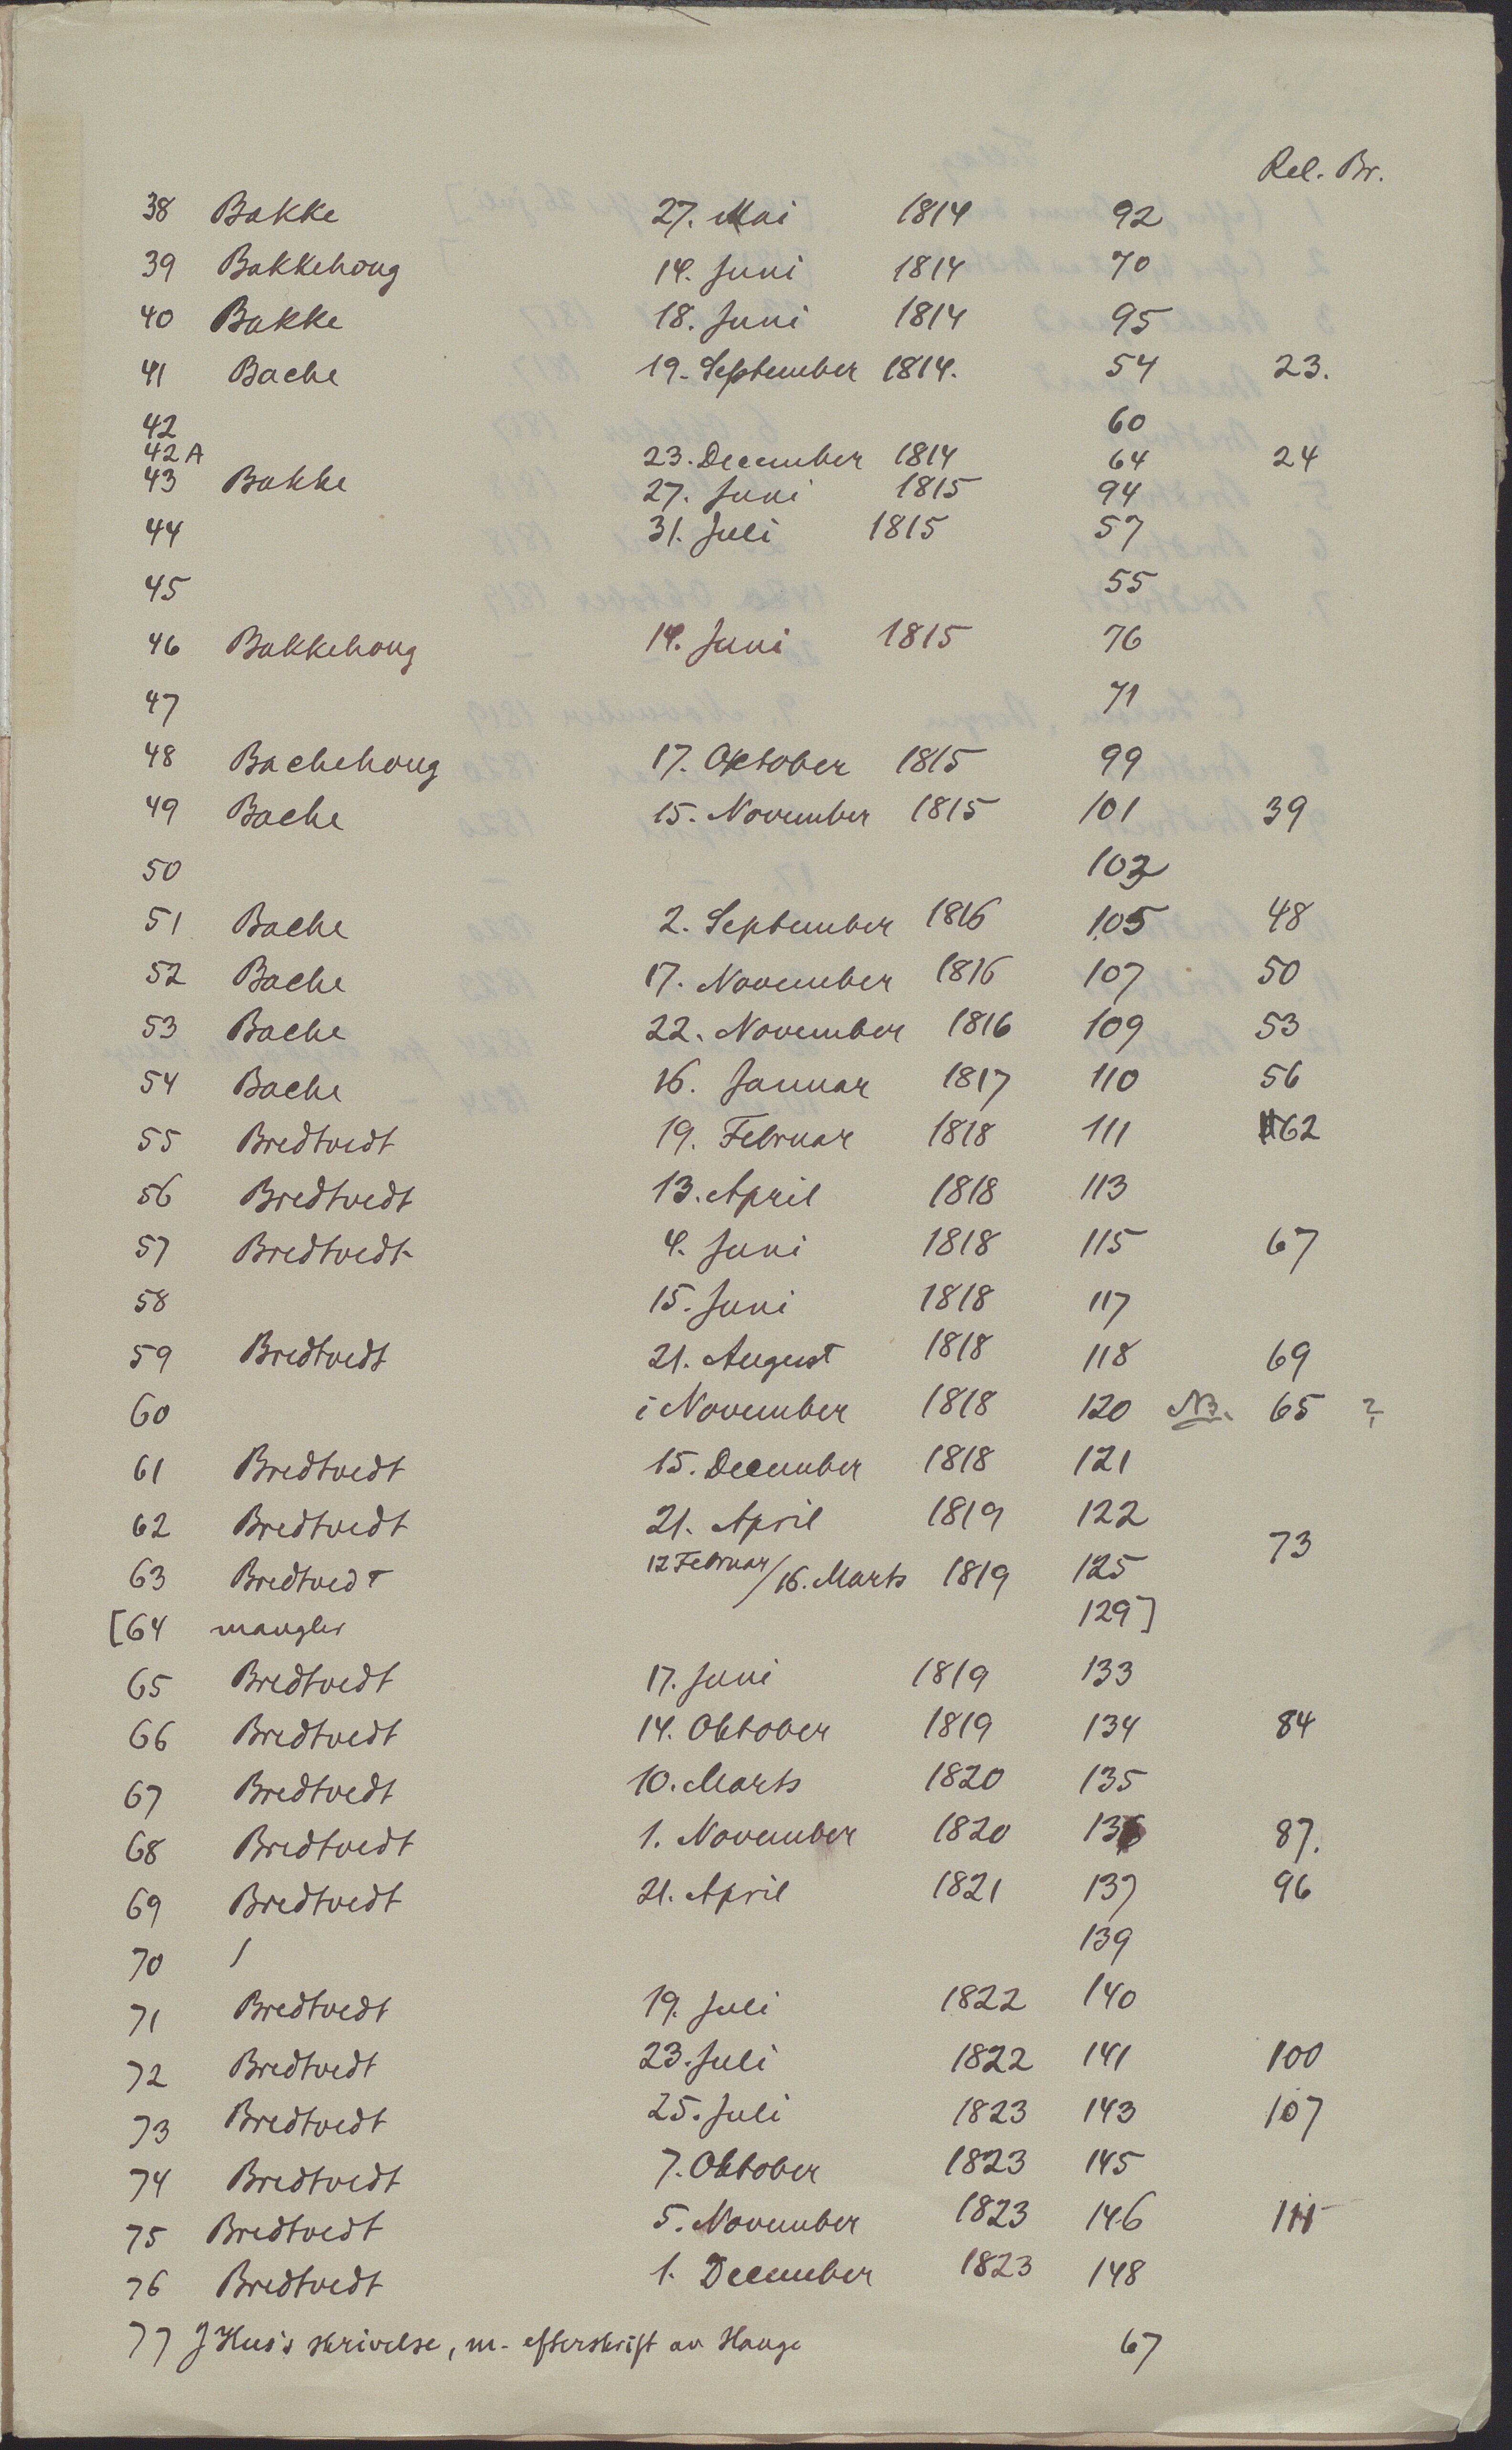 Rel. Br.
38 Bakke 27. Mai 1814 92
39 Bakkehoug 14. Juni 1814 70
40 Bakke 18. Juni 1814 95
41 Bache 19. September 1814. 54 23.
42 60
42 A 23. December 1814 64 24
43 Bakke 27. Juni 1815 94
44 31. Juli 1815 57
45 55
46 Bakkehoug 14. Juni 1815 76
47 71
48 Bachehoug 17. Oktober 1815 99
49 Bache 15. November 1815 101 39
50 103
51 Bache 2. September 1816 105 48
52 Bache 17. November 1816 107 50
53 Bache 22. November 1816 109 53
54 Bache 16. Januar 1817 110 56
55 Bredtvedt 19. Februar 1818 111 62
56 Bredtvedt 13. April 1818 113
57 Bredtvedt 4. Juni 1818 115 67
58 15. Juni 1818 117
59 Bredtvedt 21. August 1818 118 69
60 i November 1818 120 NB. 65 ?
61 Bredtvedt 15. December 1818 121
62 Bredtvedt 21. April 1819 122
73
63 Bredtvedt 12 Februar/16. Marts 1819 125
[64 mangler 129]
65 Bredtvedt 17. Juni 1819 133
66 Bredtvedt 14. Oktober 1819 134 84
67 Bredtvedt 10. Marts 1820 135
68 Bredtvedt 1. November 1820 136 87.
69 Bredtvedt 21. April 1821 137 96
70 / 139
71 Bredtvedt 19. Juli 1822 140
72 Bredtvedt 23. Juli 1822 141 100
73 Bredtvedt 25. Juli 1823 143 107
74 Bredtvedt 7. Oktober 1823 145
75 Bredtvedt 5. November 1823 146
76 Bredtvedt 1. December 1823 148
77 J Hus's skrivelse, m. efterskrift av Hauge 67